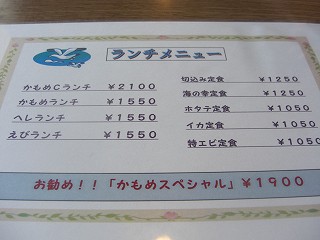 ランチメニュー
かもめCランチ ￥2100
かもめランチ ￥1550
ヘレランチ ￥1550
えびランチ ￥1550
切込み定食 ￥1250
海の幸定食 ￥1250
ホタテ定食 ￥1050
イカ定食 ￥1050
特エビ定食 ￥1050
お勧め！！「かもめスペシャル」￥1900